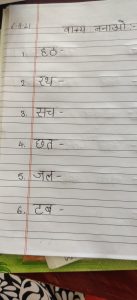 वाक्य बनाओ :-
1. हठ -
2. रथ -
3. सच -
4. छत -
5. जल -
6. टब -